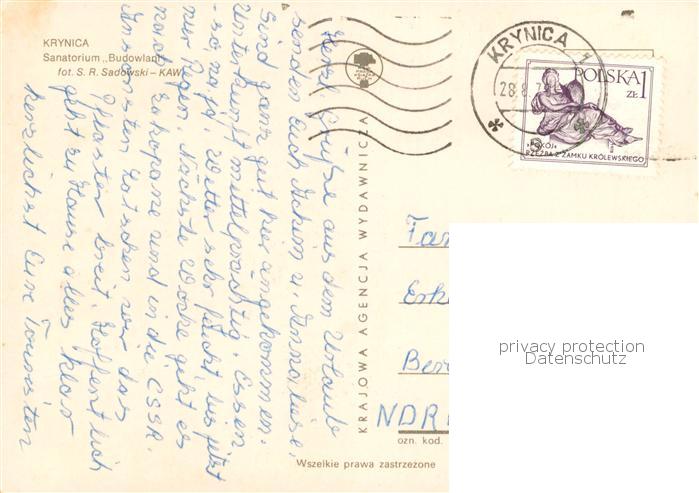 KRYNICA
Sanatorium „Budowlani”
fot. S. R. Sadowski – KAW
Herzl. Grüße aus dem Urlaub
senden Euch Achim u. Annaliese.
Sind ganz gut hier angekommen.
Unterkunft mittelprächtig, Essen
- so, na ja, Wetter sehr feucht bis jetzt
nur Regen. Nächste Woche geht es
nach Zakopane und in die CSSR.
Ansonsten latschen wir das
Pflaster breit. Hoffentlich
geht zu Hause alles klar
herzlichst Eure Touristen
KRAJOWA AGENCJA WYDAWNICZA
KRYNICA
28.8.7
POLSKA 1
ZŁ
„POKÓJ”
RZEŹBA Z ZAMKU KRÓLEWSKIEGO
Fam
Erk
Ber
NDR
ozn. kod.
Wszelkie prawa zastrzeżone
privacy protection
Datenschutz